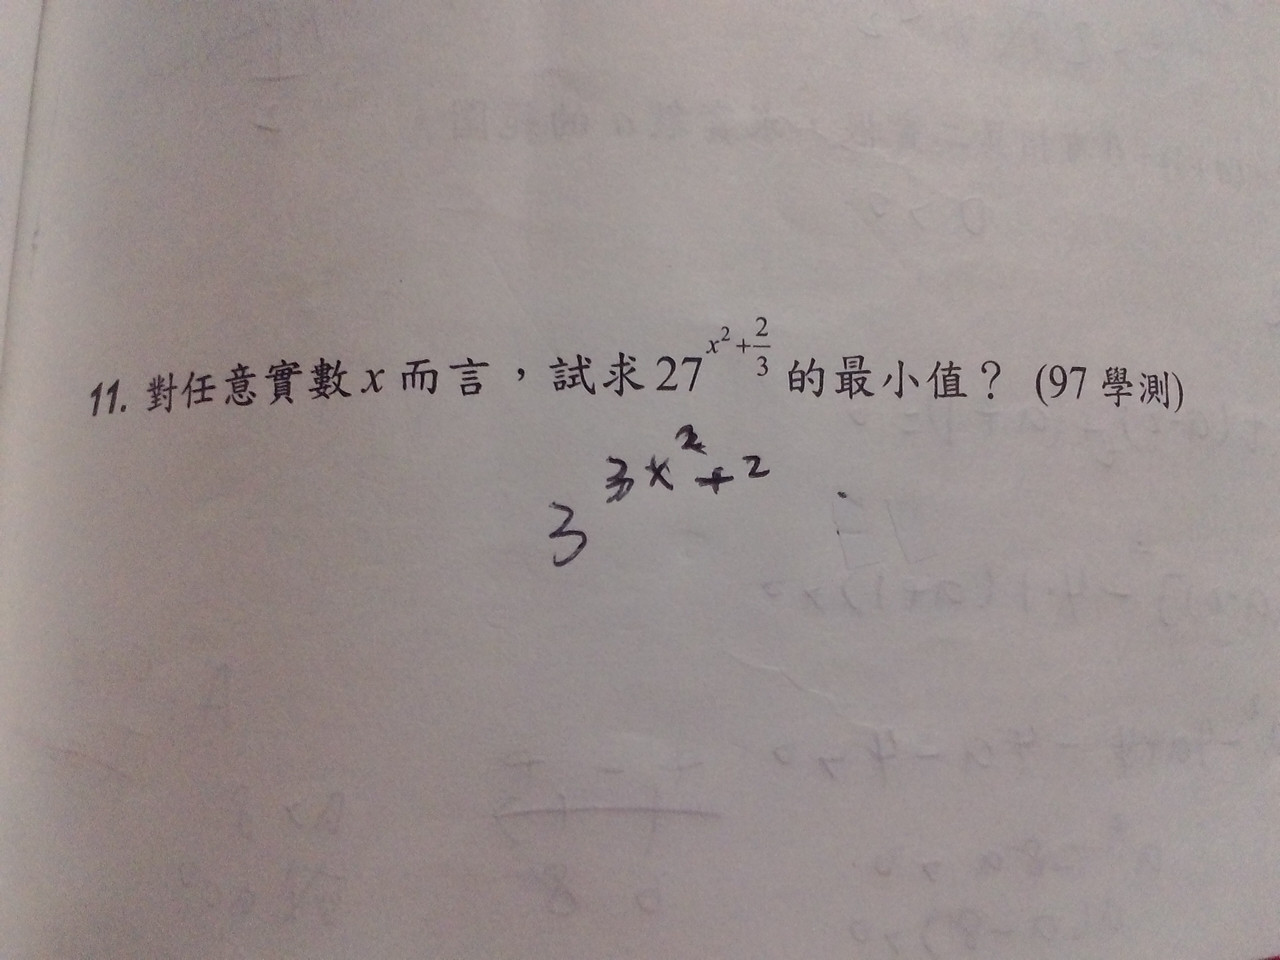 11. 對任意實數 x 而言，試求 27^{x^2+\frac{2}{3}} 的最小值？ (97 學測)
3^{3x^2+2}